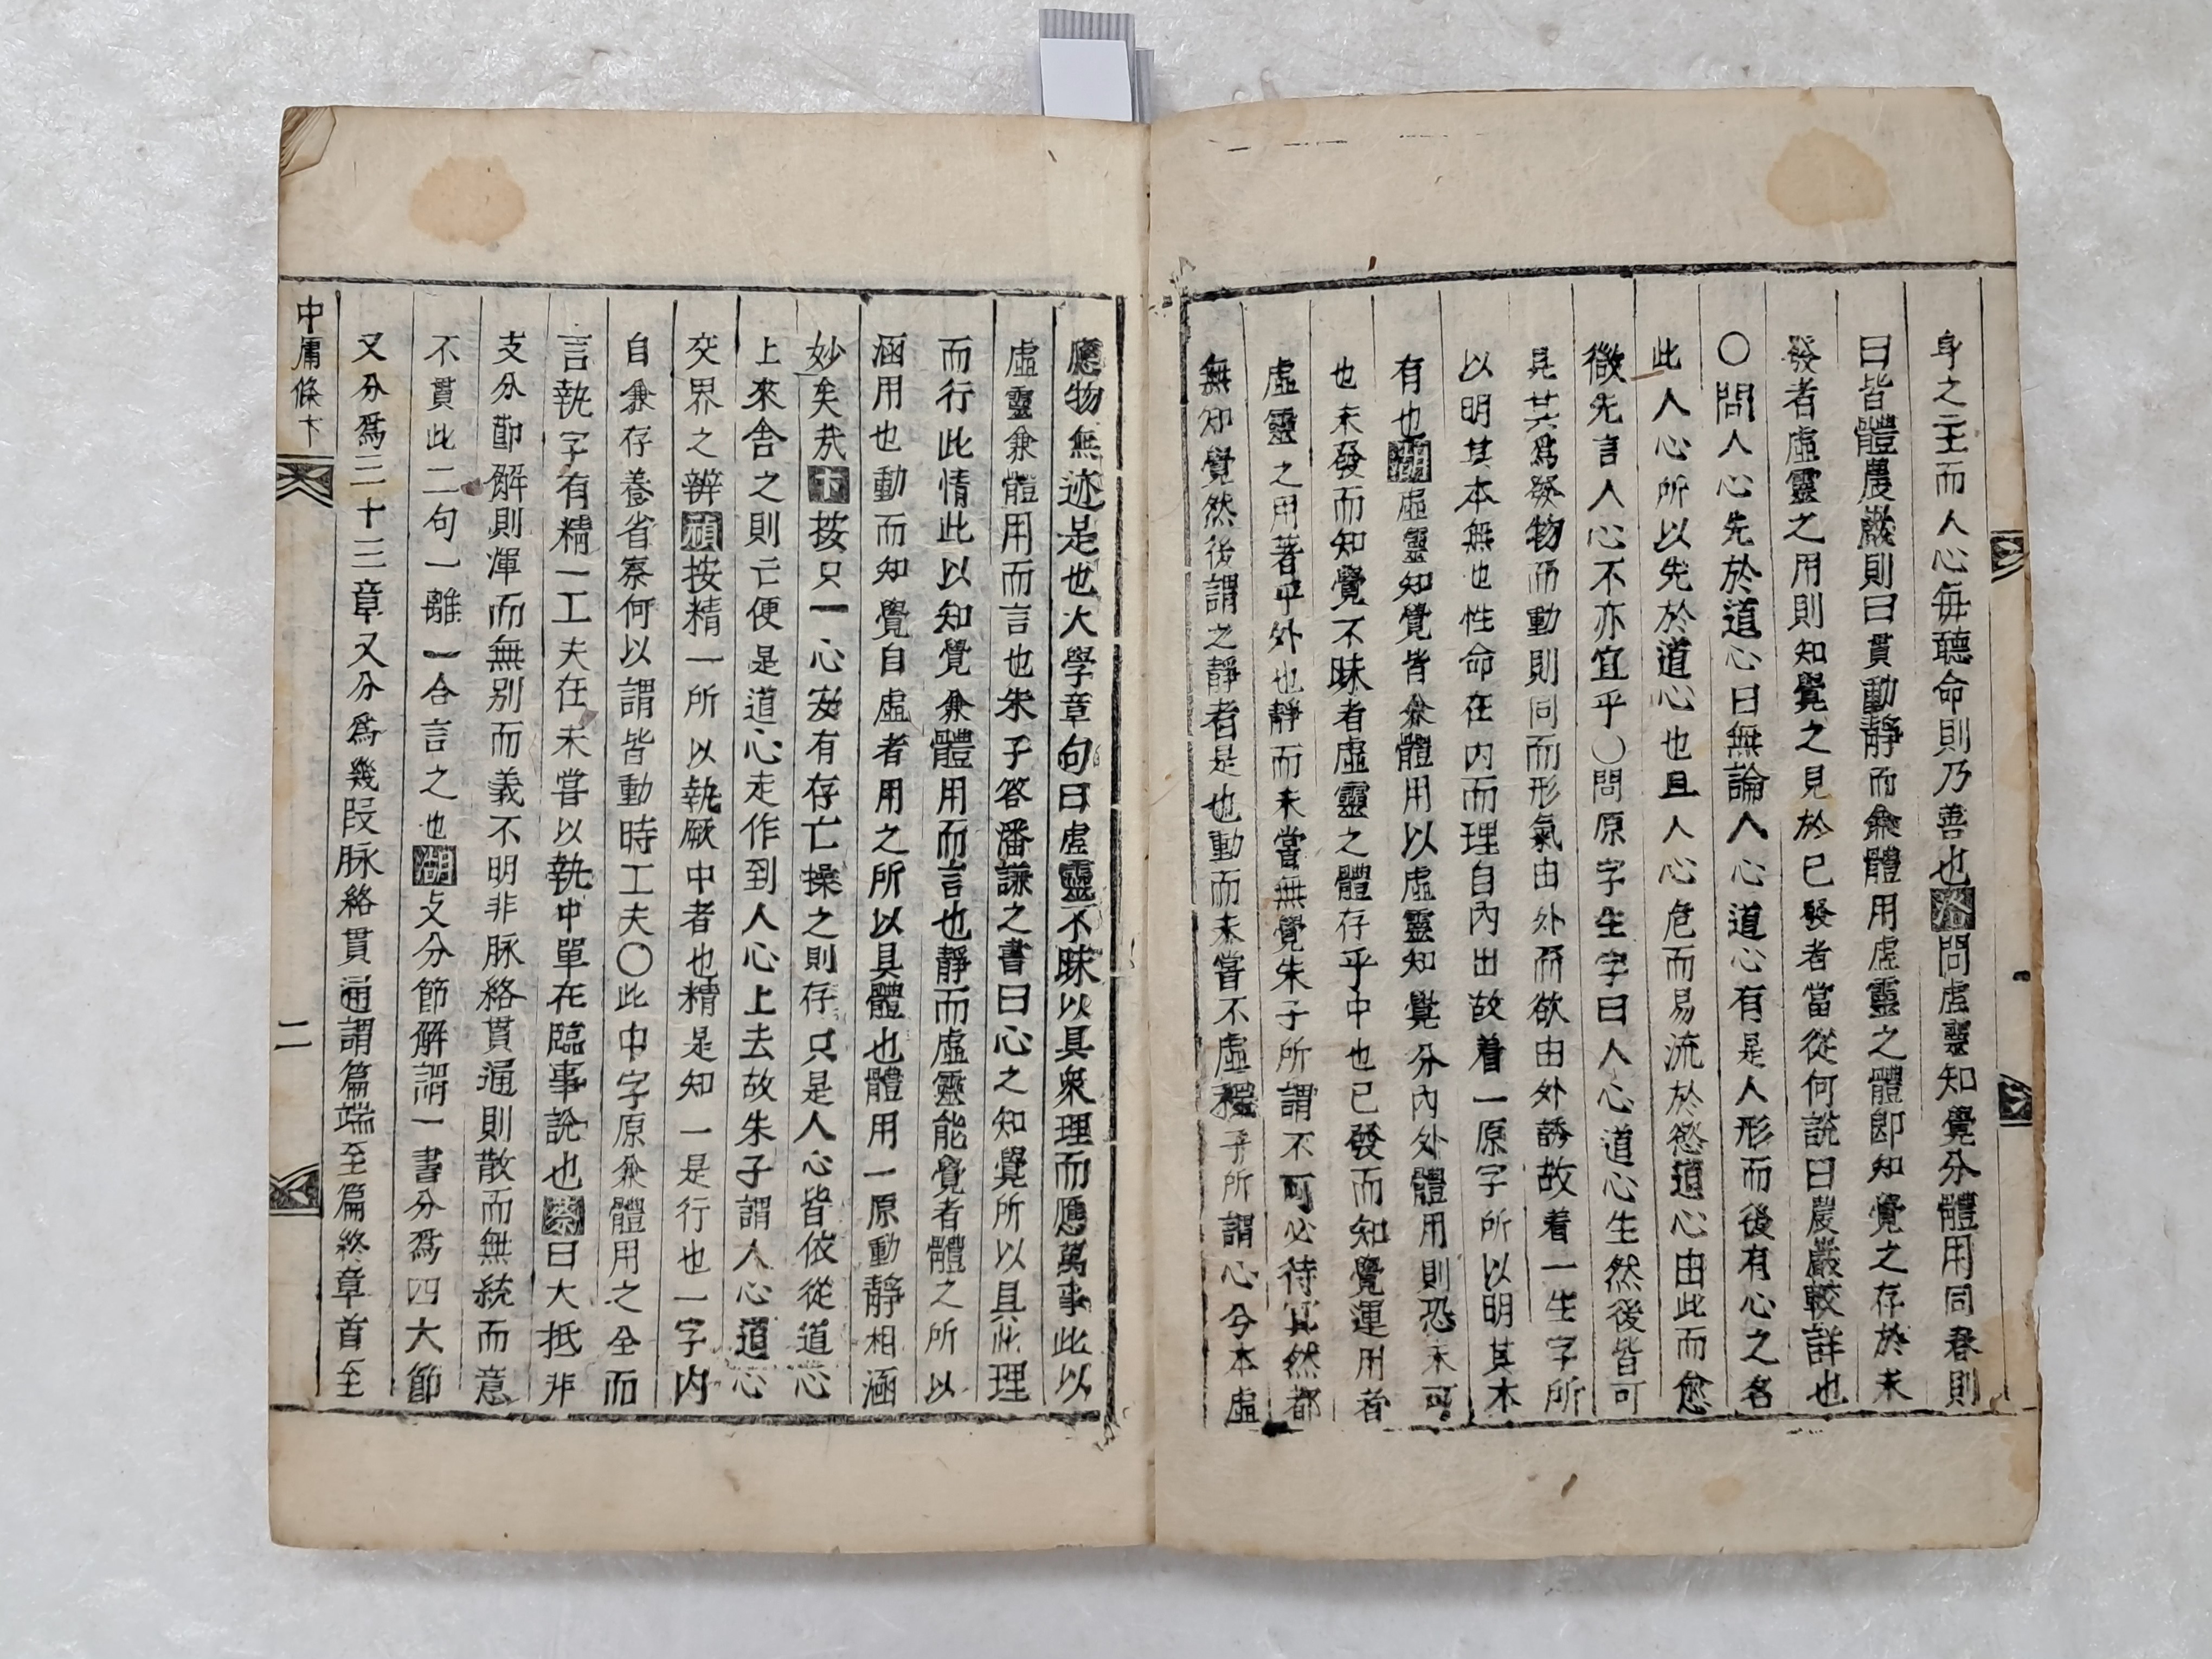 身之主而人心每聽命則乃善也洛問虛靈知覺分體用同春則
曰皆體農巖則曰貫動靜而兼體用虛靈之體卽知覺之存於未
發者虛靈之用則知覺之見於已發者當從何說曰農巖較詳也
〇問人心先於道心曰無論人心道心有是人形而後有心之名
此人心所以先於道心也且人心危而易流於慾道心由此而愈
微先言人心不亦宜乎〇問原字生字曰人心道心生然後皆可
見其爲發物而動則同而形氣由外而欲由外誘故着一生字所
以明其本無也性命在內而理自內出故着一原字所以明其本
有也湖虛靈知覺皆兼體用以虛靈知覺分內外體用則恐未可
也未發而知覺不昧者虛靈之體存乎中也已發而知覺運用者
虛靈之用著乎外也靜而未嘗無覺朱子所謂不可必待冥然都
無知覺然後謂之靜者是也動而未嘗不虛程子所謂心兮本虛
應物無迹是也大學章句曰虛靈不昧以具衆理而應萬事此以
虛靈兼體用而言也朱子答潘謙之書曰心之知覺所以具此理
而行此情此以知覺兼體用而言也靜而虛靈能覺者體之所以
涵用也動而知覺自虛者用之所以具體也體用一原動靜相涵
妙矣㢤卞按只一心玆有存亡操之則存只是人心皆依從道心
上來舍之則亡便是道心走作到人心上去故朱子謂人心道心
交界之辨頑按精一所以執厥中者也精是知一是行也一字內
自兼存養省察何以謂皆動時工夫〇此中字原兼體用之全而
言執字有精一工夫在未嘗以執中單在臨事說也泰曰大抵非
支分節解則渾而無別而義不明非脉絡貫通則散而無統而意
不貫此二句一離一合言之也湖支分節解謂一書分爲四大節
又分爲三十三章又分爲幾段脉絡貫通謂篇端至篇終章首至
中庸條卞
二